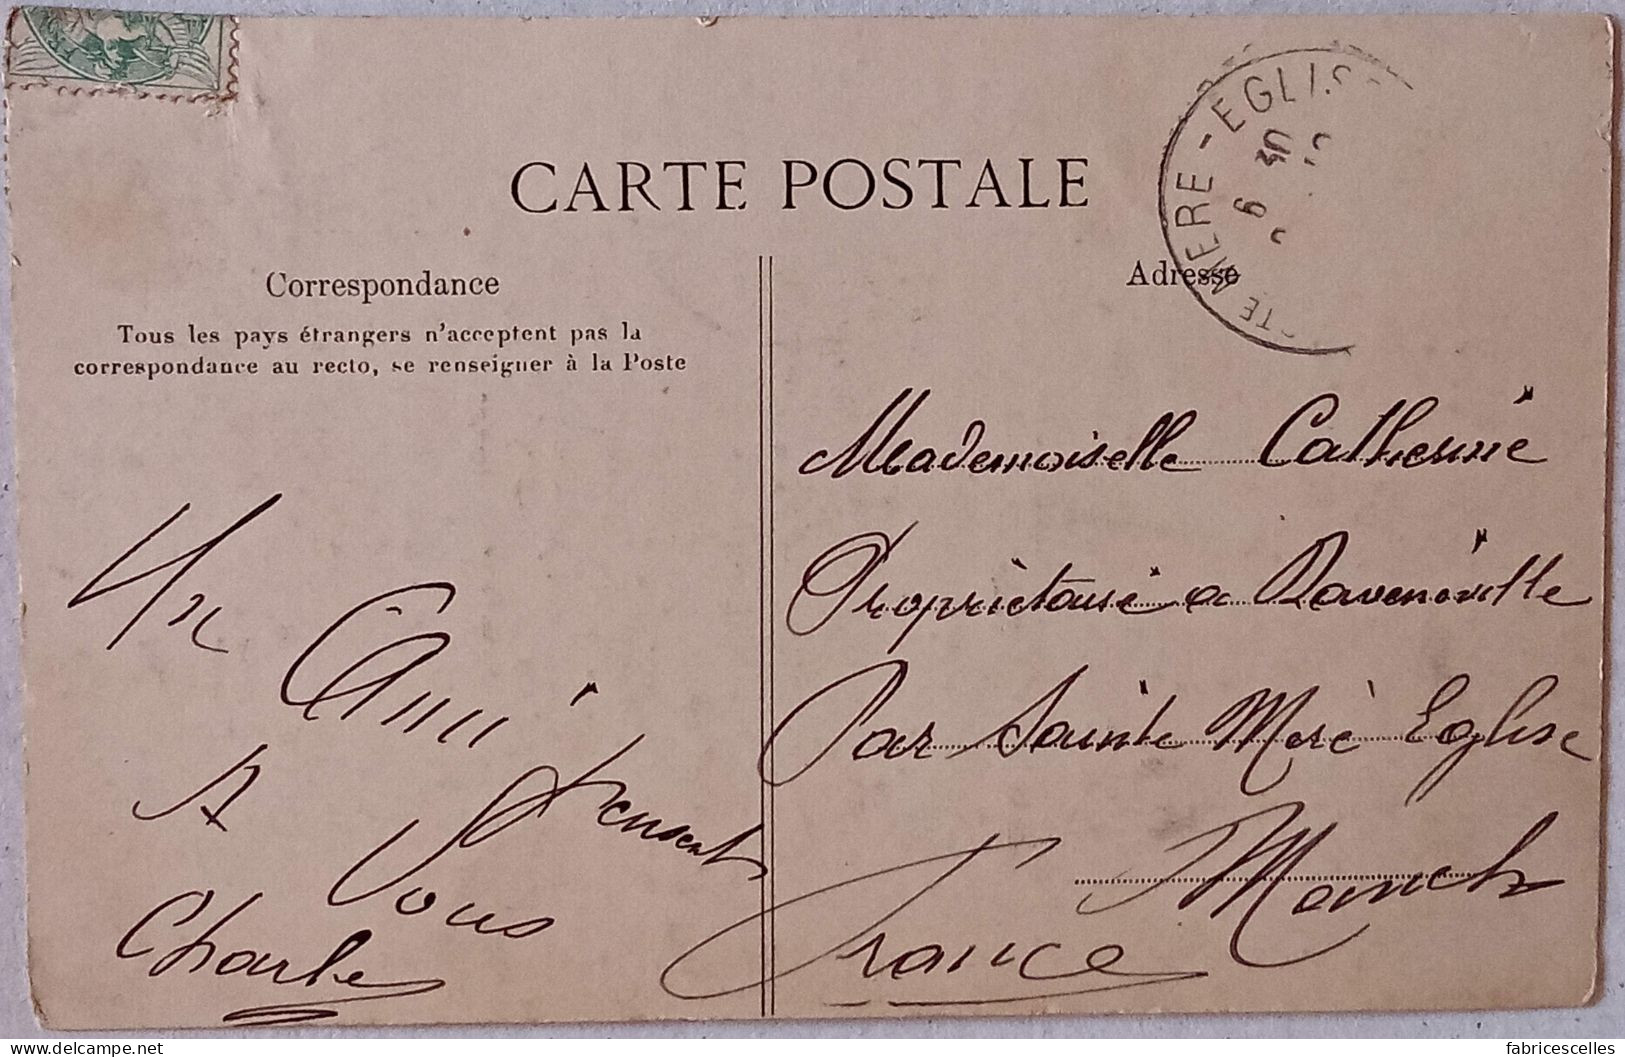 CARTE POSTALE
Correspondance
Tous les pays étrangers n'acceptent pas la
correspondance au recto, se renseigner à la Poste
Un Ami
pensent
A Vous
Charles
Adresse
STE MERE-EGLISE
6
30
Mademoiselle Catherine
Propriètaire a Ravenoville
Par Sainte Merè Eglise
Manche
France
www.delcampe.net
fabricescelles